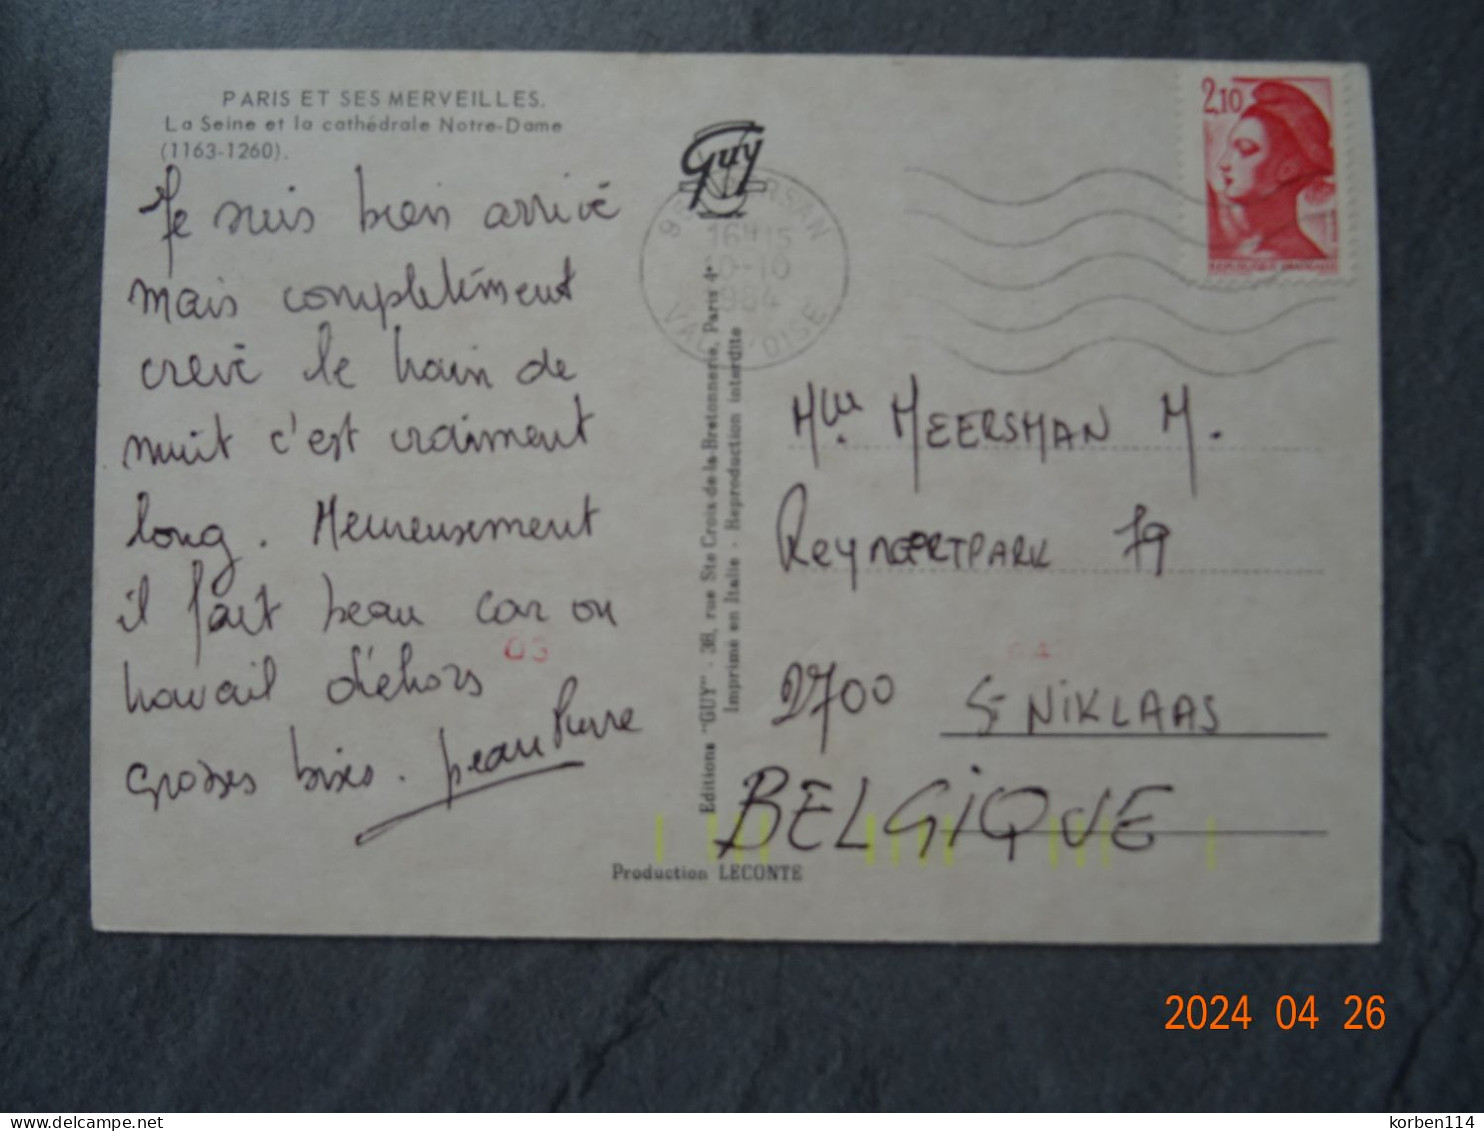 PARIS ET SES MERVEILLES.
La Seine et la cathédrale Notre-Dame
(1163-1260).
Je suis bien arrivé
mais complètément
crevé le train de
nuit c'est vraiment
long. Heureusement
il fait beau car on
travail d'éhors
grosses bises.
Pierre
Guy
16H15
10-10
1984
VAL D'OISE
2,10
Editions "GUY" - 38, rue Ste Croix-de-la-Bretonnerie, Paris 4e
Imprimé en Italie - Reproduction interdite
Production LECONTE
Mlle MEERSMAN M.
ReyNGERTPARK 79
2700 St NIKLAAS
BELGIQUE
03
2024 04 26
delcampe.net
korben114